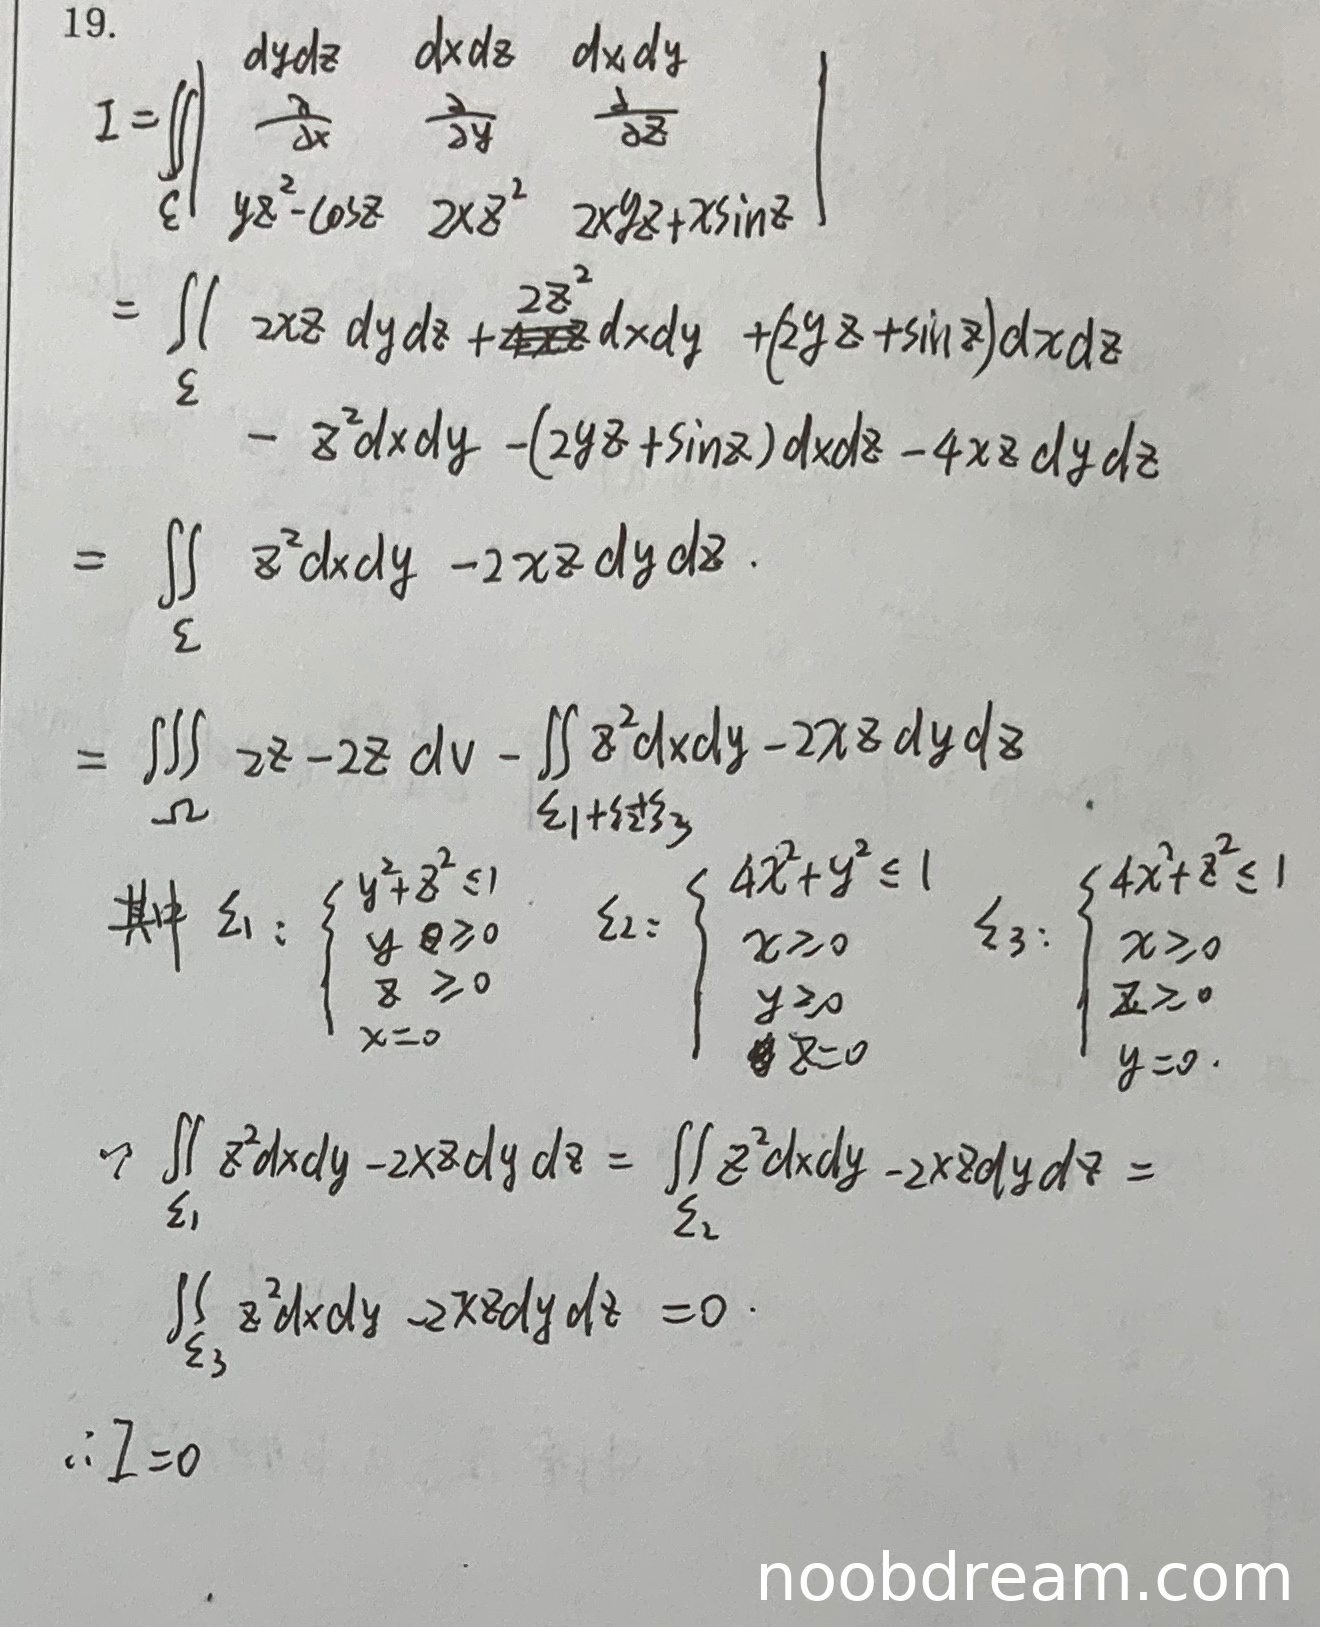 19.
I = ∬_Σ | dydz dxdz dxdy
∂/∂x ∂/∂y ∂/∂z
yz²-cosz 2xz² 2xyz+xsinz |
= ∬_Σ 2xz dydz + 2z² dxdy + (2yz+sinz)dxdz
- z²dxdy - (2yz+sinz)dxdz - 4xz dydz
= ∬_Σ z²dxdy - 2xz dydz.
= ∭_Ω 2z-2z dv - ∬_Σ1+Σ2+Σ3 z²dxdy - 2xz dydz
其中 Σ1: { y²+z²≤1 y≥0 z≥0 x=0 Σ2: { 4x²+y²≤1 x≥0 y≥0 z=0 Σ3: { 4x²+z²≤1 x≥0 z≥0 y=0.
∵ ∬_Σ1 z²dxdy - 2xzdydz = ∬_Σ2 z²dxdy - 2xzdydz =
∬_Σ3 z²dxdy - 2xzdydz = 0.
∴ I = 0
noobdream.com